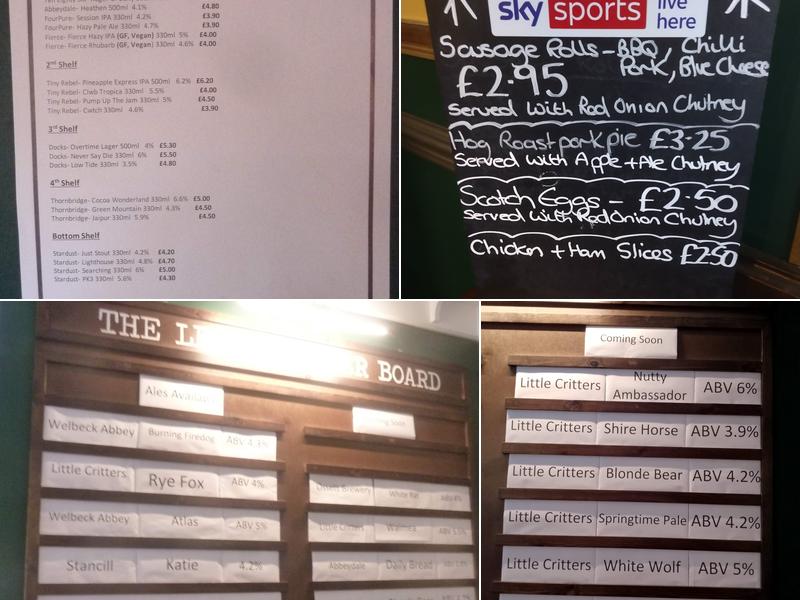 Abbeydale- Heathen 500ml 4.1% £4.80
FourPure- Session IPA 330ml 4.2% £3.90
FourPure- Hazy Pale Ale 330ml 4.7% £3.90
Fierce- Fierce Hazy IPA (GF, Vegan) 330ml 5% £4.00
Fierce- Fierce Rhubarb (GF, Vegan) 330ml 4.6% £4.00
2nd Shelf
Tiny Rebel- Pineapple Express IPA 500ml 6.2% £6.20
Tiny Rebel- Clwb Tropica 330ml 5.5% £4.00
Tiny Rebel- Pump Up The Jam 330ml 5% £4.50
Tiny Rebel- Cwtch 330ml 4.6% £3.90
3rd Shelf
Docks- Overtime Lager 500ml 4% £5.30
Docks- Never Say Die 330ml 6% £5.50
Docks- Low Tide 330ml 3.5% £4.80
4th Shelf
Thornbridge- Cocoa Wonderland 330ml 6.6% £5.00
Thornbridge- Green Mountain 330ml 4.3% £4.50
Thornbridge- Jaipur 330ml 5.9% £4.50
Bottom Shelf
Stardust- Just Stout 330ml 4.2% £4.20
Stardust- Lighthouse 330ml 4.8% £4.70
Stardust- Searching 330ml 6% £5.00
Stardust- PK3 330ml 5.6% £4.30
sky sports live here
Sausage Rolls - BBQ, Chilli
Pork, Blue Cheese
£2.95
Served with Red Onion Chutney
Hog Roast pork pie £3.25
Served with Apple + Ale Chutney
Scotch Eggs - £2.50
Served with Red Onion Chutney
Chicken + Ham Slices £2.50
THE BOARD
Ales
Welbeck Abbey Burning Firedog ABV 4.3%
Little Critters Rye Fox ABV 4%
Welbeck Abbey Atlas ABV 5%
Stancill Katie 4.2%
Soon
Brewery White Rat
Little Critters
Abbeydale Daily Bread
Coming Soon
Little Critters Nutty Ambassador ABV 6%
Little Critters Shire Horse ABV 3.9%
Little Critters Blonde Bear ABV 4.2%
Little Critters Springtime Pale ABV 4.2%
Little Critters White Wolf ABV 5%